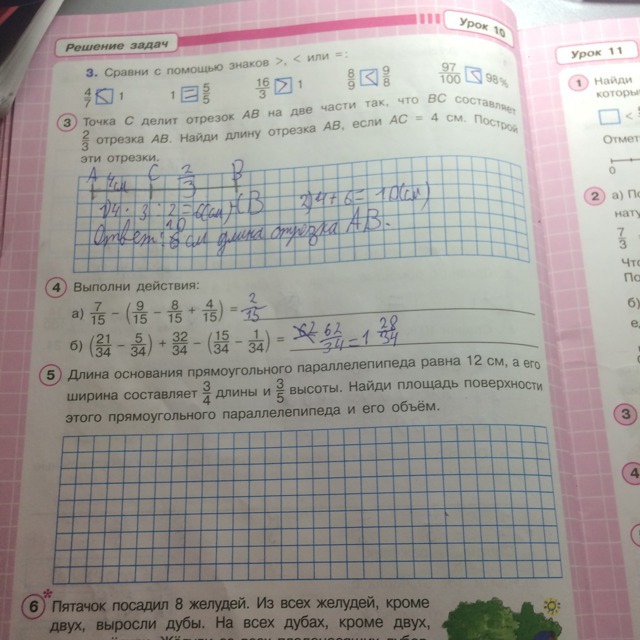 Решение задач
Урок 10
3. Сравни с помощью знаков >, < или =:
4/7 < 1   1 = 5/5   16/3 > 1   8/9 < 9/8   97/100 < 98%
3 Точка C делит отрезок AB на две части так, что BC составляет
2/3 отрезка AB. Найди длину отрезка AB, если AC = 4 см. Построй
эти отрезки.
A 4см C 2/3 B
1) 4 : 3 · 2 = 6(см) CB   2) 4 + 6 = 10(см)
Ответ: 10 см длина отрезка AB.
4 Выполни действия:
а) 7/15 − (9/15 − 8/15 + 4/15) = 2/15
б) (21/34 − 5/34) + 32/34 − (15/34 − 1/34) = 62/34 = 1 28/34
5 Длина основания прямоугольного параллелепипеда равна 12 см, а его
ширина составляет 3/4 длины и 3/5 высоты. Найди площадь поверхности
этого прямоугольного параллелепипеда и его объём.
6* Пятачок посадил 8 желудей. Из всех желудей, кроме
двух, выросли дубы. На всех дубах, кроме двух,
Урок 11
1 Найди
которы
<
Отмет
0
2 а) По
нату
7/3
Что
По
б)
е
3
4